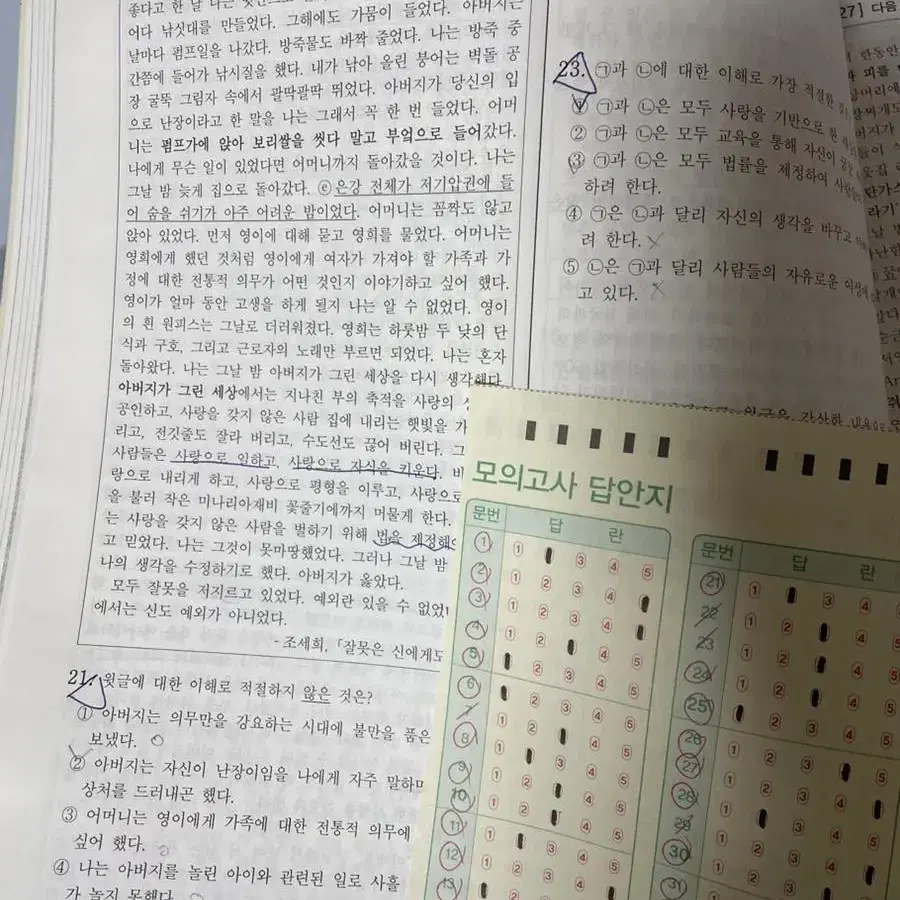 좋다고 한 날 나는
어다 낚싯대를 만들었다. 그해에도 가뭄이 들었다. 아버지는
날마다 펌프일을 나갔다. 방죽물도 바짝 줄었다. 나는 방죽 중
간쯤에 들어가 낚시질을 했다. 내가 낚아 올린 붕어는 벽돌 공
장 굴뚝 그림자 속에서 팔딱팔딱 뛰었다. 아버지가 당신의 입
으로 난장이라고 한 말을 나는 그래서 꼭 한 번 들었다. 어머
니는 펌프가에 앉아 보리쌀을 씻다 말고 부엌으로 들어갔다.
나에게 무슨 일이 있었다면 어머니까지 돌아갔을 것이다. 나는
그날 밤 늦게 집으로 돌아갔다. ⓔ은강 전체가 저기압권에 들
어 숨을 쉬기가 아주 어려운 밤이었다. 어머니는 꼼짝도 않고
앉아 있었다. 먼저 영이에 대해 묻고 영희를 물었다. 어머니는
영희에게 했던 것처럼 영이에게 여자가 가져야 할 가족과 가
정에 대한 전통적 의무가 어떤 것인지 이야기하고 싶어 했다.
영이가 얼마 동안 고생을 하게 될지 나는 알 수 없었다. 영이
의 흰 원피스는 그날로 더러워졌다. 영희는 하룻밤 두 낮의 단
식과 구호, 그리고 근로자의 노래만 부르면 되었다. 나는 혼자
돌아왔다. 나는 그날 밤 아버지가 그린 세상을 다시 생각했다.
아버지가 그린 세상에서는 지나친 부의 축적을 사랑의
공인하고, 사랑을 갖지 않은 사람 집에 내리는 햇빛을 가
리고, 전깃줄도 잘라 버리고, 수도선도 끊어 버린다. 그
사람들은 사랑으로 일하고, 사랑으로 자식을 키운다. 비
랑으로 내리게 하고, 사랑으로 평형을 이루고, 사랑으로
을 불러 작은 미나리아재비 꽃줄기에까지 머물게 한다.
는 사랑을 갖지 않은 사람을 벌하기 위해 법을 제정해
고 믿었다. 나는 그것이 못마땅했었다. 그러나 그날 밤
나의 생각을 수정하기로 했다. 아버지가 옳았다.
모두 잘못을 저지르고 있었다. 예외란 있을 수 없었
에서는 신도 예외가 아니었다.
- 조세희, 「잘못은 신에게도
21. 윗글에 대한 이해로 적절하지 않은 것은?
① 아버지는 의무만을 강요하는 시대에 불만을 품은
보냈다.
② 아버지는 자신이 난장이임을 나에게 자주 말하며
상처를 드러내곤 했다.
③ 어머니는 영이에게 가족에 대한 전통적 의무에
싶어 했다.
④ 나는 아버지를 놀린 아이와 관련된 일로 사흘
가 놀지 못했다.
23. ㉠과 ㉡에 대한 이해로 가장 적절한
① ㉠과 ㉡은 모두 사랑을 기반으로 한
② ㉠과 ㉡은 모두 교육을 통해 자신이
③ ㉠과 ㉡은 모두 법률을 제정하여
하려 한다.
④ ㉠은 ㉡과 달리 자신의 생각을 바꾸고
려 한다.
⑤ ㉡은 ㉠과 달리 사람들의 자유로운
고 있다.
27] 다음
모의고사 답안지
문번 답 란
1 ① ③ ④ ⑤
2 ① ② ③ ④
3 ① ② ③ ④
4 ① ② ④ ⑤
5 ② ③ ④ ⑤
6 ② ③ ④ ⑤
7 ① ② ④ ⑤
8 ① ② ④ ⑤
9 ① ② ④ ⑤
10 ① ② ④ ⑤
11 ① ③ ④ ⑤
12 ① ② ④ ⑤
13
문번 답 란
21 ① ③ ④
22 ① ② ④
23 ① ② ④
24 ① ② ④
25 ② ③ ④
26 ① ② ③ ⑤
27 ① ② ③
28 ① ③ ④
29 ① ② ③
30 ① ② ③
31